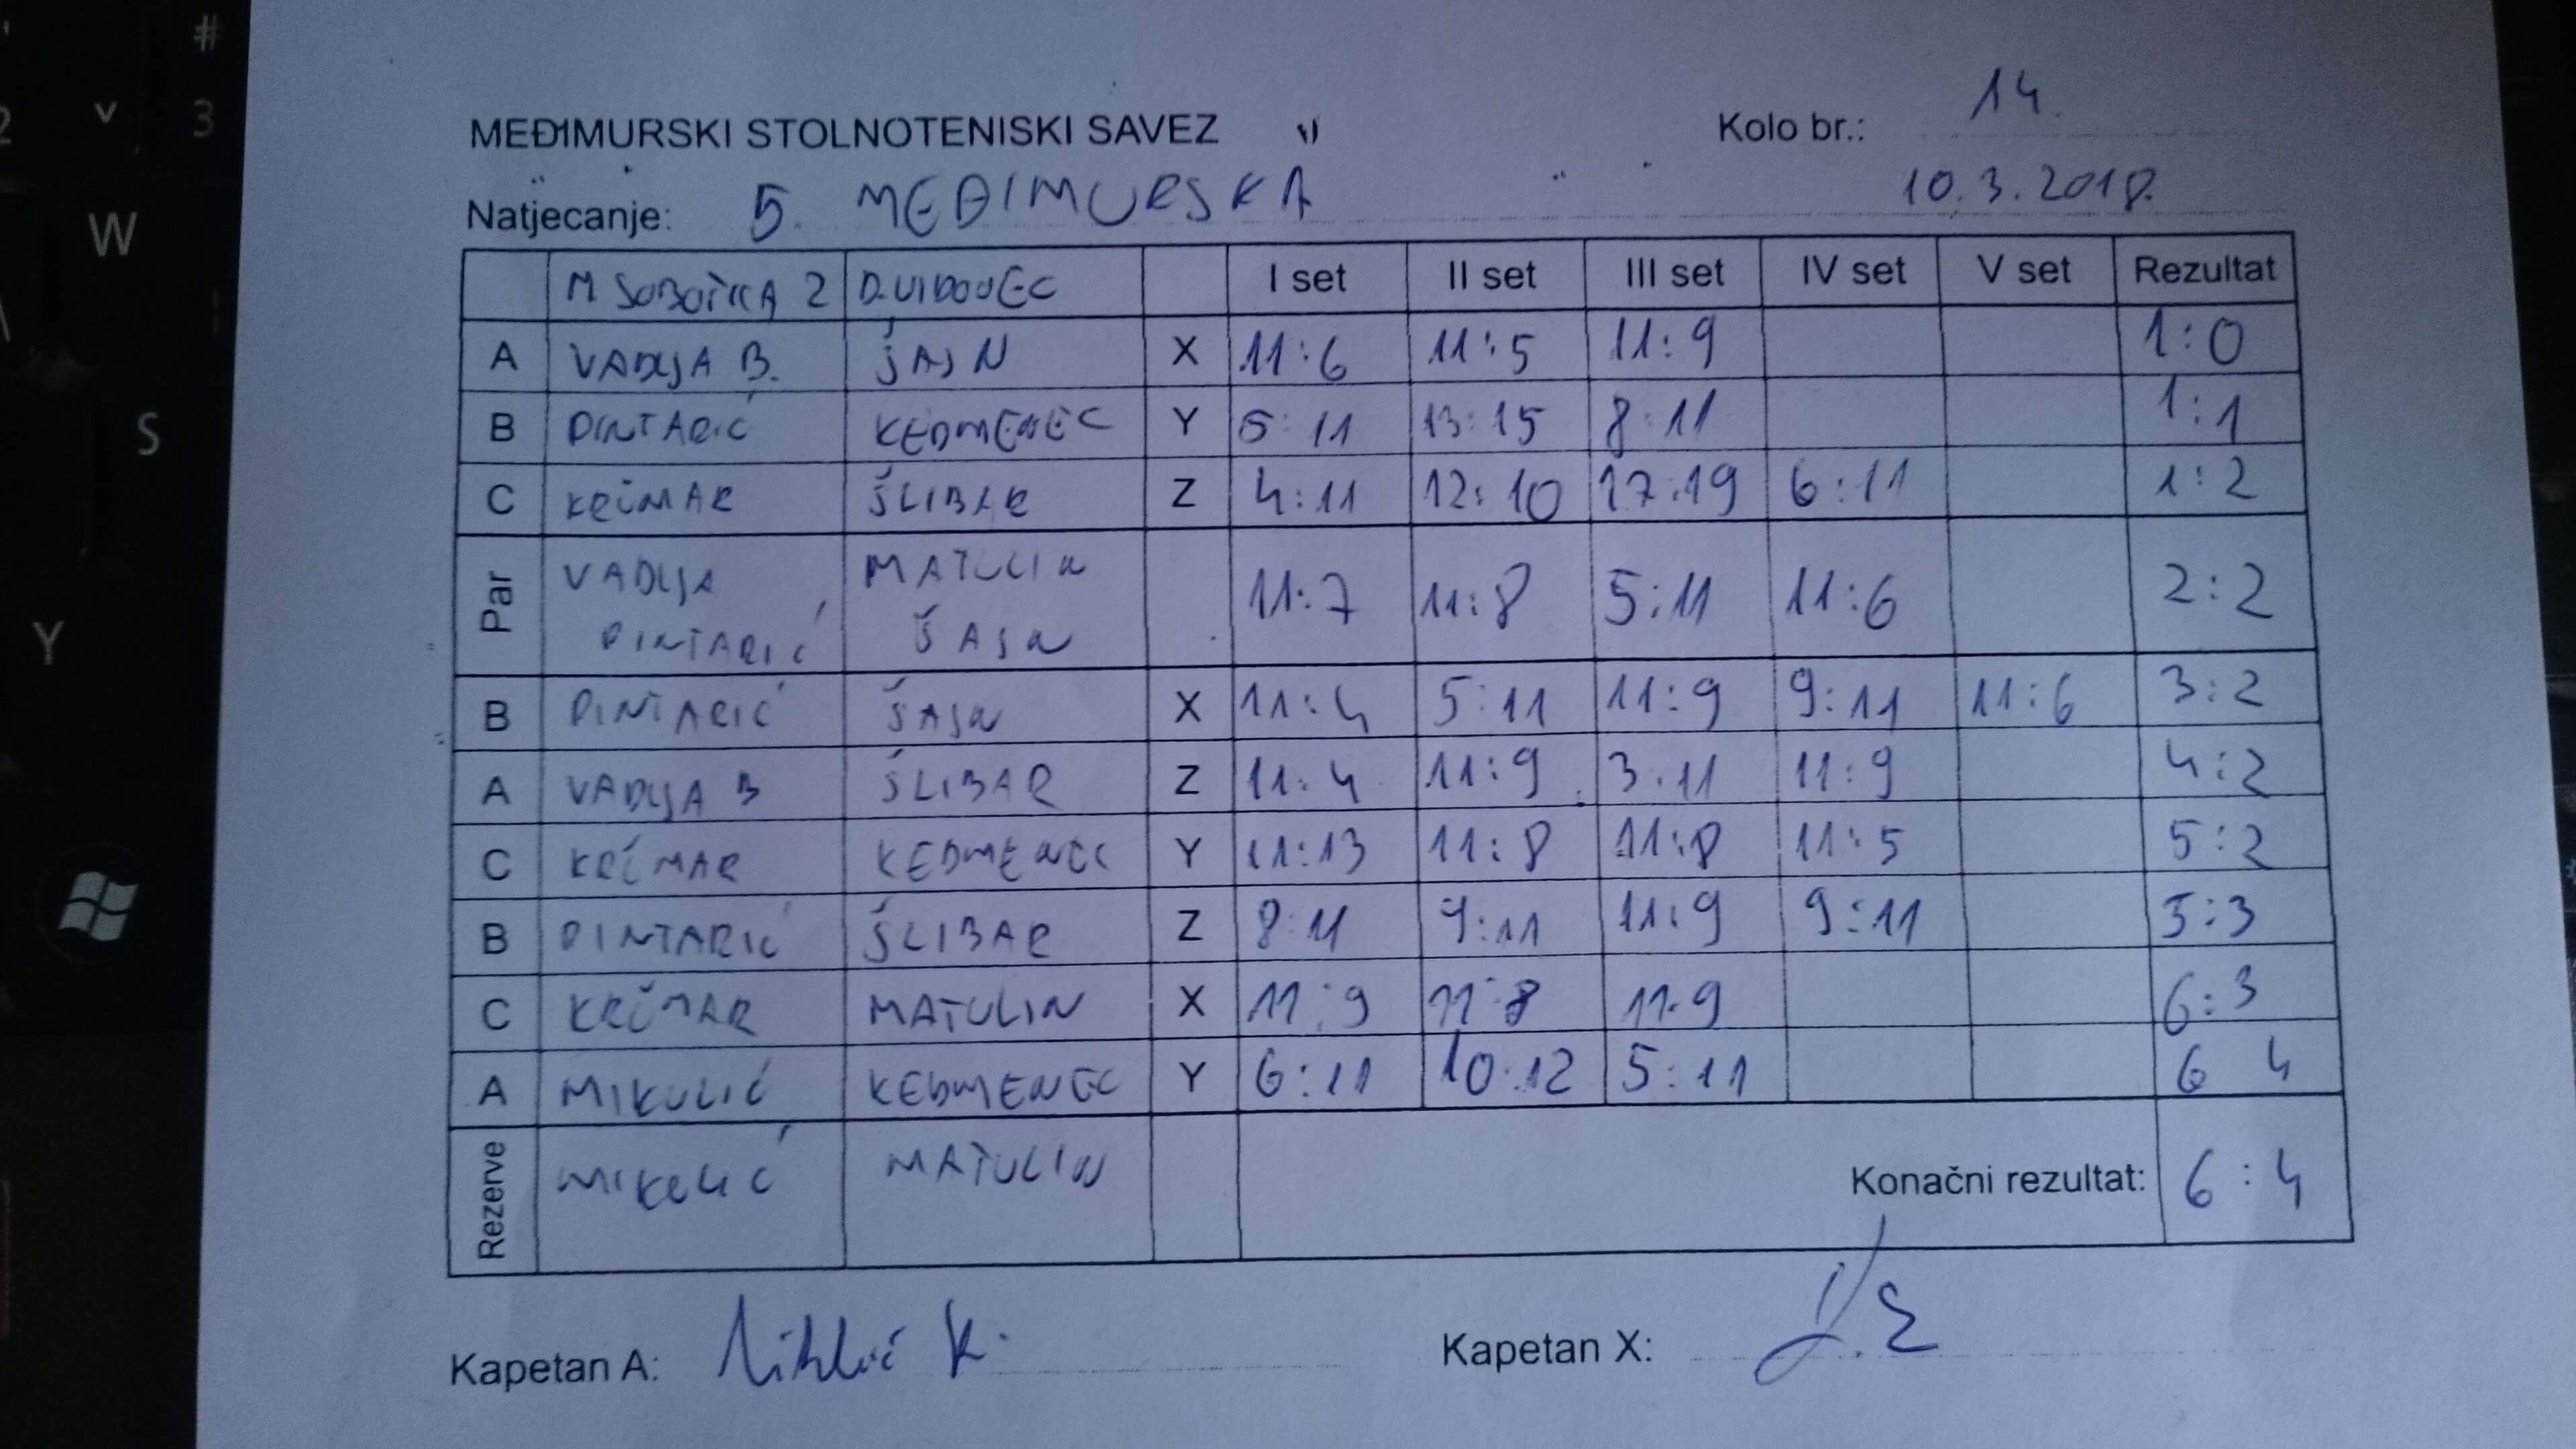 MEĐIMURSKI STOLNOTENISKI SAVEZ Kolo br.: 14.
Natjecanje: 5. MEĐIMURSKA 10.3.2018.
M SOBOTICA 2 D.VIDOVEC I set II set III set IV set V set Rezultat
A VADLJA B. ŠAJN X 11:6 11:5 11:9 1:0
B PINTARIĆ KEDMENEC Y 5:11 13:15 8:11 1:1
C KRČMAR ŠLIBAR Z 4:11 12:10 17:19 6:11 1:2
Par VADLJA MATULIN 11:7 11:8 5:11 11:6 2:2
PINTARIĆ ŠAJN
B PINTARIĆ ŠAJN X 11:4 5:11 11:9 9:11 11:6 3:2
A VADLJA B ŠLIBAR Z 11:4 11:9 3:11 11:9 4:2
C KRČMAR KEDMENEC Y 11:13 11:8 11:8 11:5 5:2
B PINTARIĆ ŠLIBAR Z 8:11 9:11 11:9 9:11 5:3
C KRČMAR MATULIN X 11:9 11:8 11-9 6:3
A MIKULIĆ KEDMENEC Y 6:11 10:12 5:11 6 4
Rezerve MIKULIĆ MATULIN Konačni rezultat: 6:4
Kapetan A: Kapetan X:
# 3 W S Y